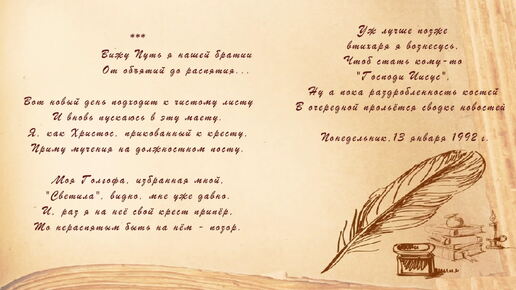 ***
Вижу Путь я нашей братии
От объятий до распятия...
Вот новый день подходит к чистому листу
И вновь пускаюсь в эту масту.
Я, как Христос, прикованный к кресту,
Приму мучения на должностном посту.
Моя Голгофа, избранная мной,
"Светила", видно, мне уже давно.
И, раз я на неё свой крест припёр,
То нераспятым быть на нём - позор.
Уж лучше позже
втихаря я вознесусь,
Чтоб стать кому-то
"Господи Иисус",
Ну а пока раздробленность костей
В очередной прольётся сводке новостей
Понедельник, 13 января 1992 г.